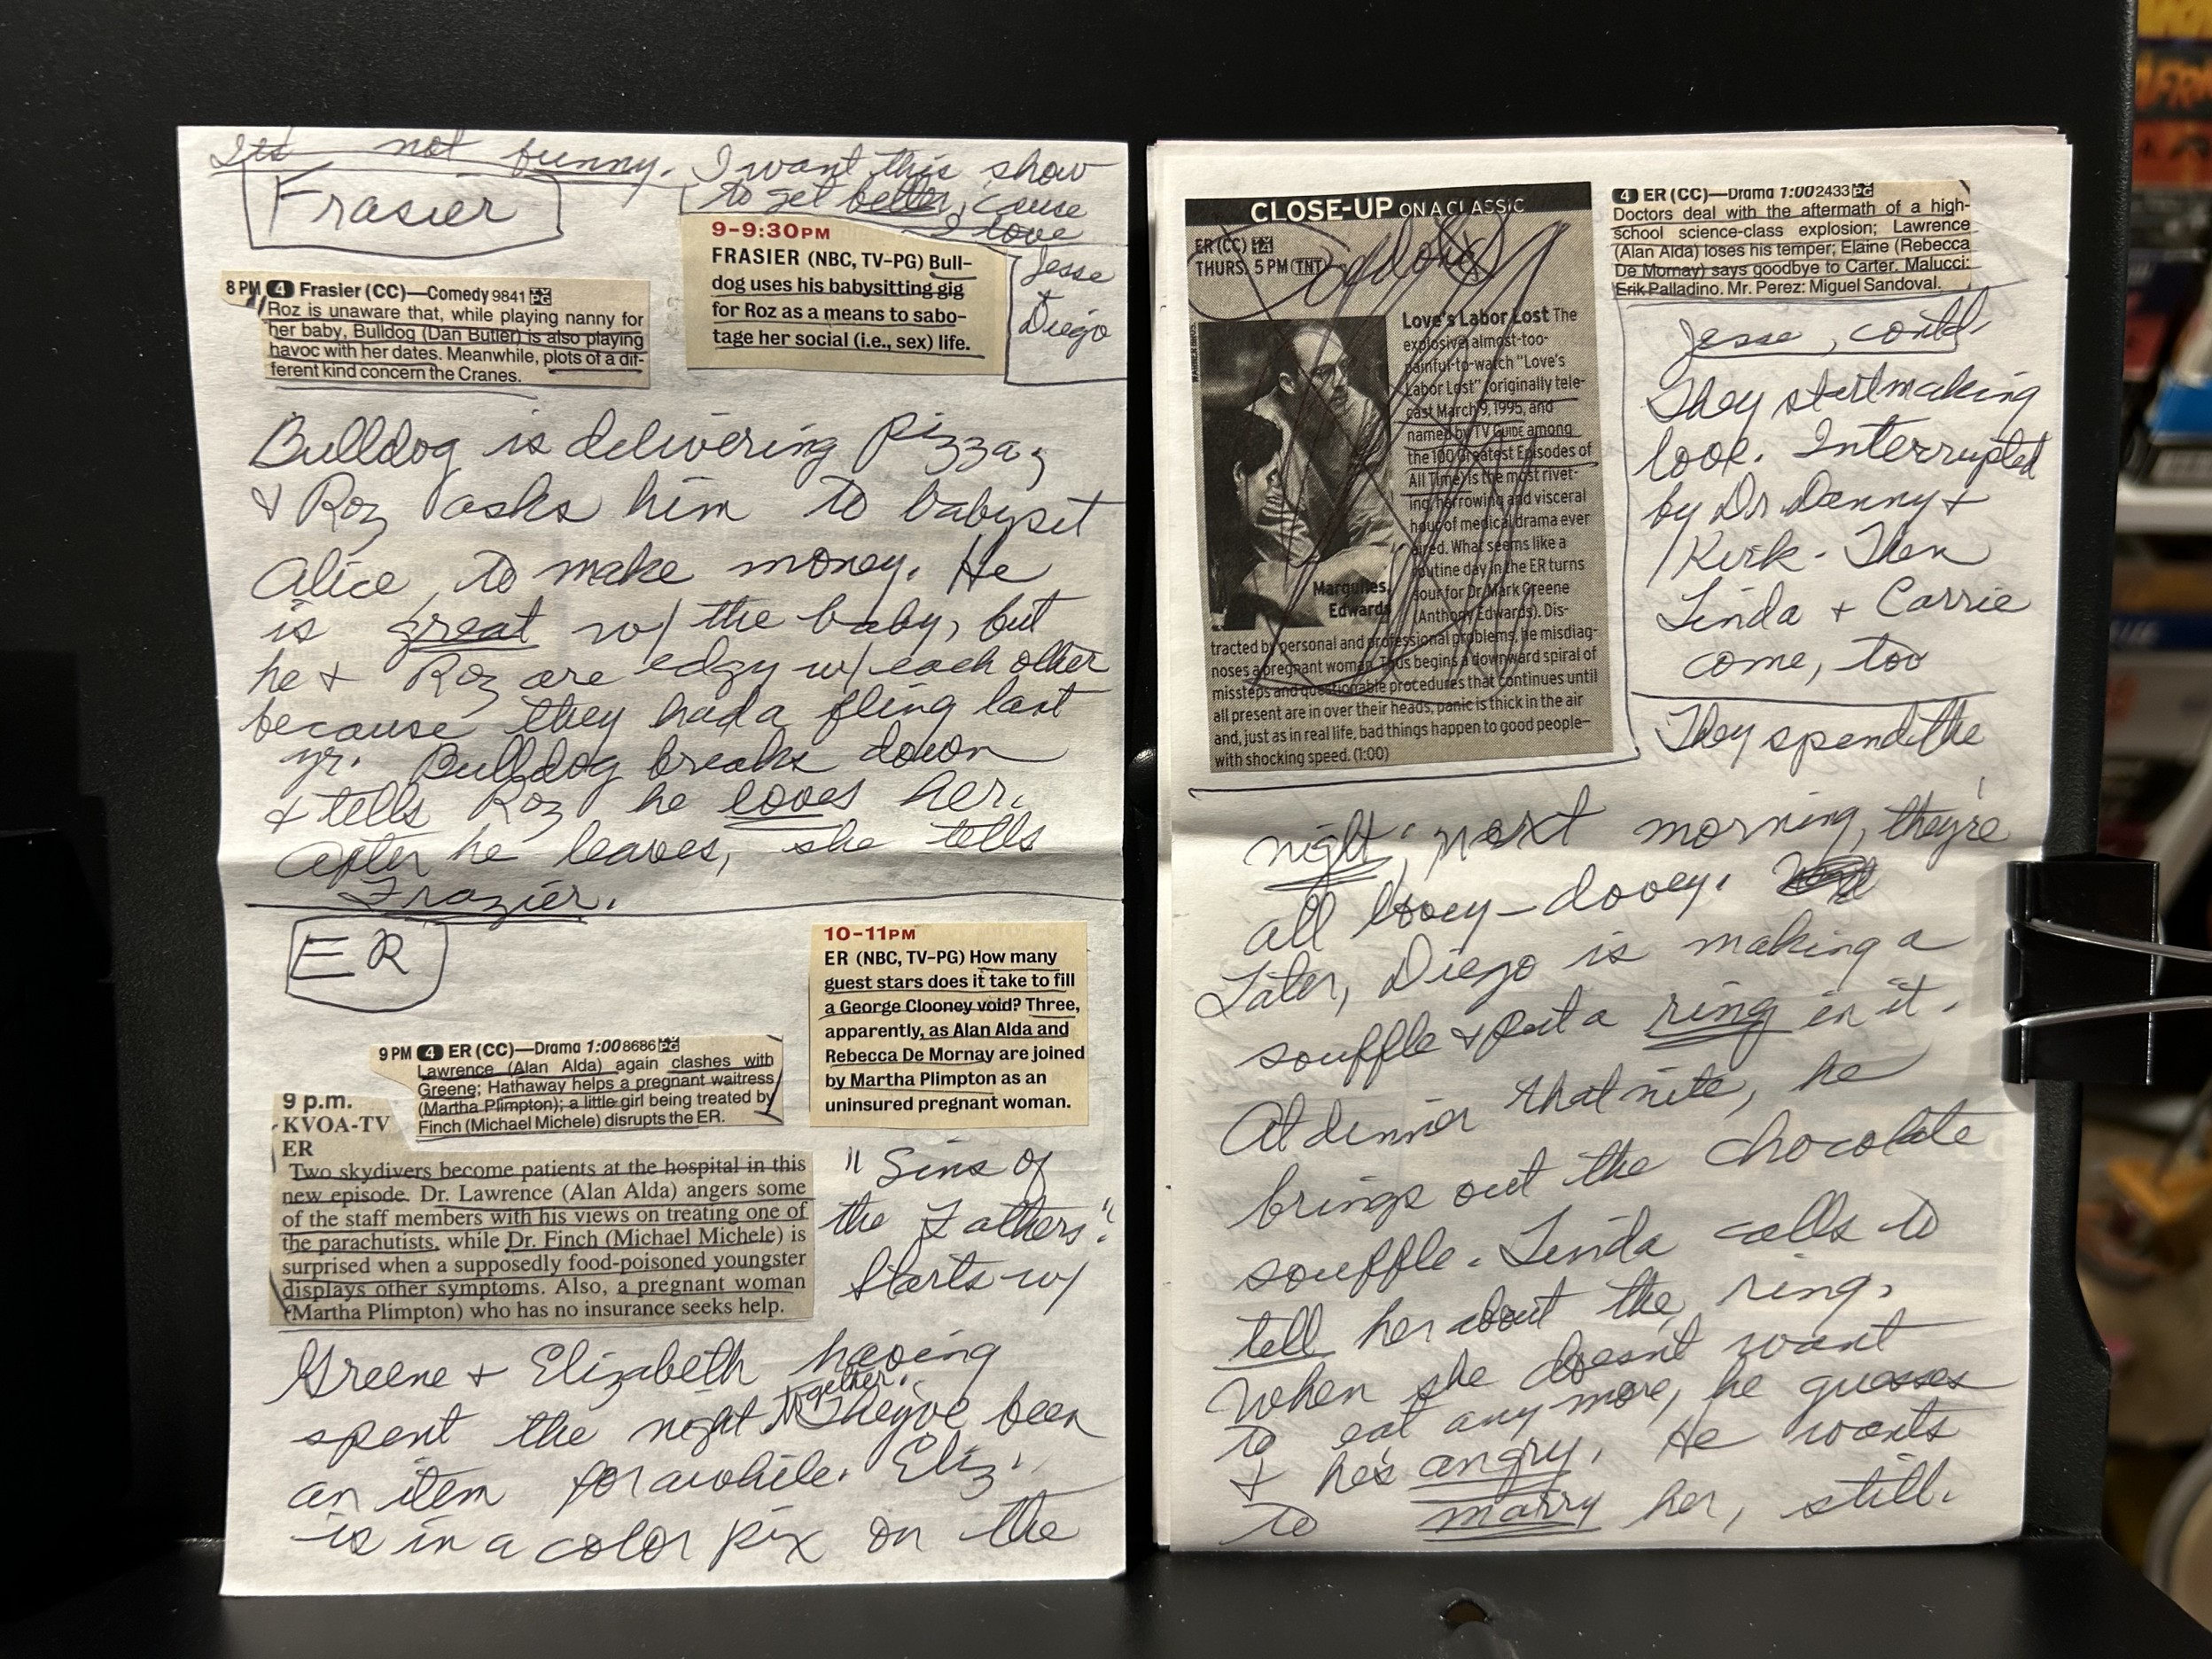 Its not funny. I want this show
to get better, 'cause
I love
Jesse
Diego
Frasier
9-9:30PM
FRASIER (NBC, TV-PG) Bull-
dog uses his babysitting gig
for Roz as a means to sabo-
tage her social (i.e., sex) life.
8 PM 4 Frasier (CC)—Comedy 9841 TV PG
Roz is unaware that, while playing nanny for
her baby, Bulldog (Dan Butler) is also playing
havoc with her dates. Meanwhile, plots of a dif-
ferent kind concern the Cranes.
Bulldog is delivering pizzas
& Roz asks him to babysit
Alice to make money. He
is great w/ the baby, but
he + Roz are edgy w/ each other
because they had a fling last
yr. Bulldog breaks down
+ tells Roz he loves her.
After he leaves, she tells
Frazier.
ER
10-11PM
ER (NBC, TV-PG) How many
guest stars does it take to fill
a George Clooney void? Three,
apparently, as Alan Alda and
Rebecca De Mornay are joined
by Martha Plimpton as an
uninsured pregnant woman.
9 PM 4 ER (CC)—Drama 1:00 8686 PG
Lawrence (Alan Alda) again clashes with
Greene; Hathaway helps a pregnant waitress
(Martha Plimpton); a little girl being treated by
Finch (Michael Michele) disrupts the ER.
9 p.m.
KVOA-TV
ER
Two skydivers become patients at the hospital in this
new episode. Dr. Lawrence (Alan Alda) angers some
of the staff members with his views on treating one of
the parachutists, while Dr. Finch (Michael Michele) is
surprised when a supposedly food-poisoned youngster
displays other symptoms. Also, a pregnant woman
(Martha Plimpton) who has no insurance seeks help.
"Sins of
the Fathers."
Starts w/
Greene + Elizabeth having
spent the night together. They've been
an item for awhile. Eliz.
is in a color pix on the
CLOSE-UP ON A CLASSIC
ER (CC) TV 14
THURS. 5 PM (TNT)
WARNER BROS.
Love's Labor Lost The
explosive, almost-too-
painful-to-watch "Love's
Labor Lost" (originally tele-
cast March 9, 1995, and
named by TV GUIDE among
the 100 Greatest Episodes of
All Time) is the most rivet-
ing, harrowing and visceral
hour of medical drama ever
aired. What seems like a
routine day in the ER turns
sour for Dr. Mark Greene
(Anthony Edwards). Dis-
tracted by personal and professional problems, he misdiag-
noses a pregnant woman. Thus begins a downward spiral of
missteps and questionable procedures that continues until
all present are in over their heads, panic is thick in the air
and, just as in real life, bad things happen to good people—
with shocking speed. (1:00)
Margulies,
Edwards
4 ER (CC)—Drama 1:00 2433 PG
Doctors deal with the aftermath of a high-
school science-class explosion; Lawrence
(Alan Alda) loses his temper; Elaine (Rebecca
De Mornay) says goodbye to Carter. Malucci:
Erik Palladino. Mr. Perez: Miguel Sandoval.
Jesse, contd.
They start making
love. Interrupted
by Dr. Danny +
Kirk - Then
Linda + Carrie
come, too
They spend the
night; next morning, they're
all lovey-dovey.
Later, Diego is making a
souffle + put a ring in it.
At dinner that nite, he
brings out the chocolate
souffle. Linda calls to
tell her about the ring.
When she doesn't want
to eat any more, he guesses
+ he's angry. He wants
to marry her, still.